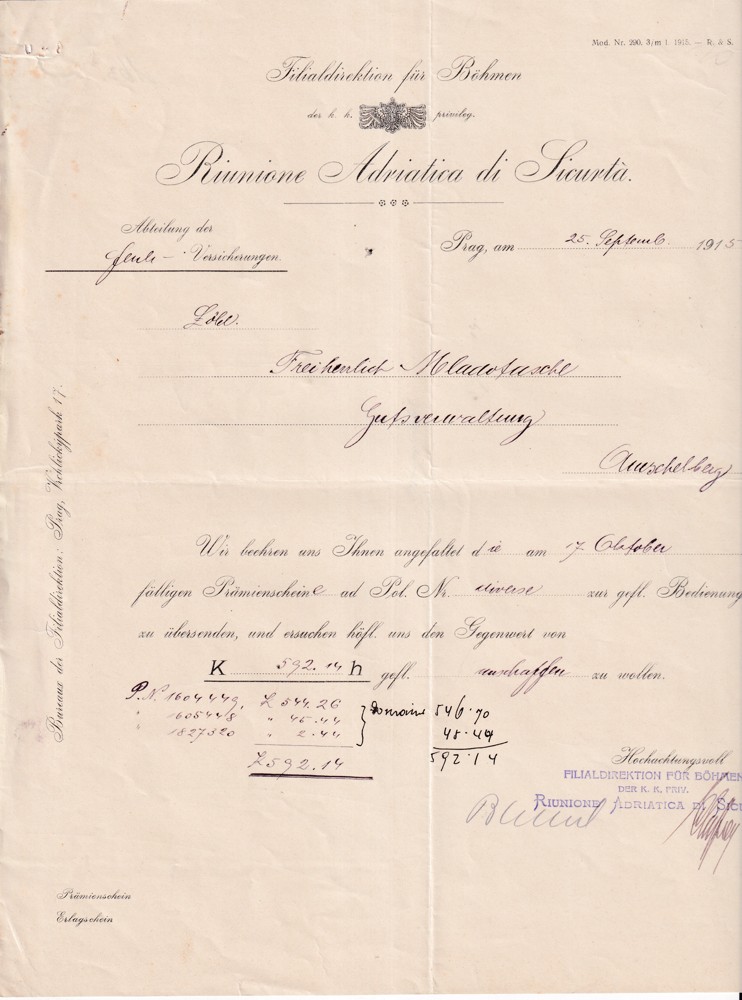 Mod. Nr. 290. 3/m 1. 1915. — R. & S.
Filialdirektion für Böhmen
der k. k. privileg.
Riunione Adriatica di Sicurtà.
Abteilung der
Feuer- Versicherungen.
Prag, am 25. Septemb. 1915
Löbl.
Freiherrlich Mladota'sche
Gutsverwaltung
Amschelberg
Bureaux der Filialdirektion: Prag, Vrchlickypark 17.
Wir beehren uns Ihnen angefaltet die am 17. Oktober
fälligen Prämienscheine ad Pol. Nr. diverse zur gefl. Bedienung
zu übersenden, und ersuchen höfl. uns den Gegenwert von
K 592.14 h gefl. anschaffen zu wollen.
P. N. 1604449, K 544.26
" 1605448 " 45.44
" 1827320 " 2.44
K 592.14
Domaine 546.70
45.44
592.14
Hochachtungsvoll
FILIALDIREKTION FÜR BÖHMEN
DER K. K. PRIV.
RIUNIONE ADRIATICA DI SICU
Prämienschein
Erlagschein